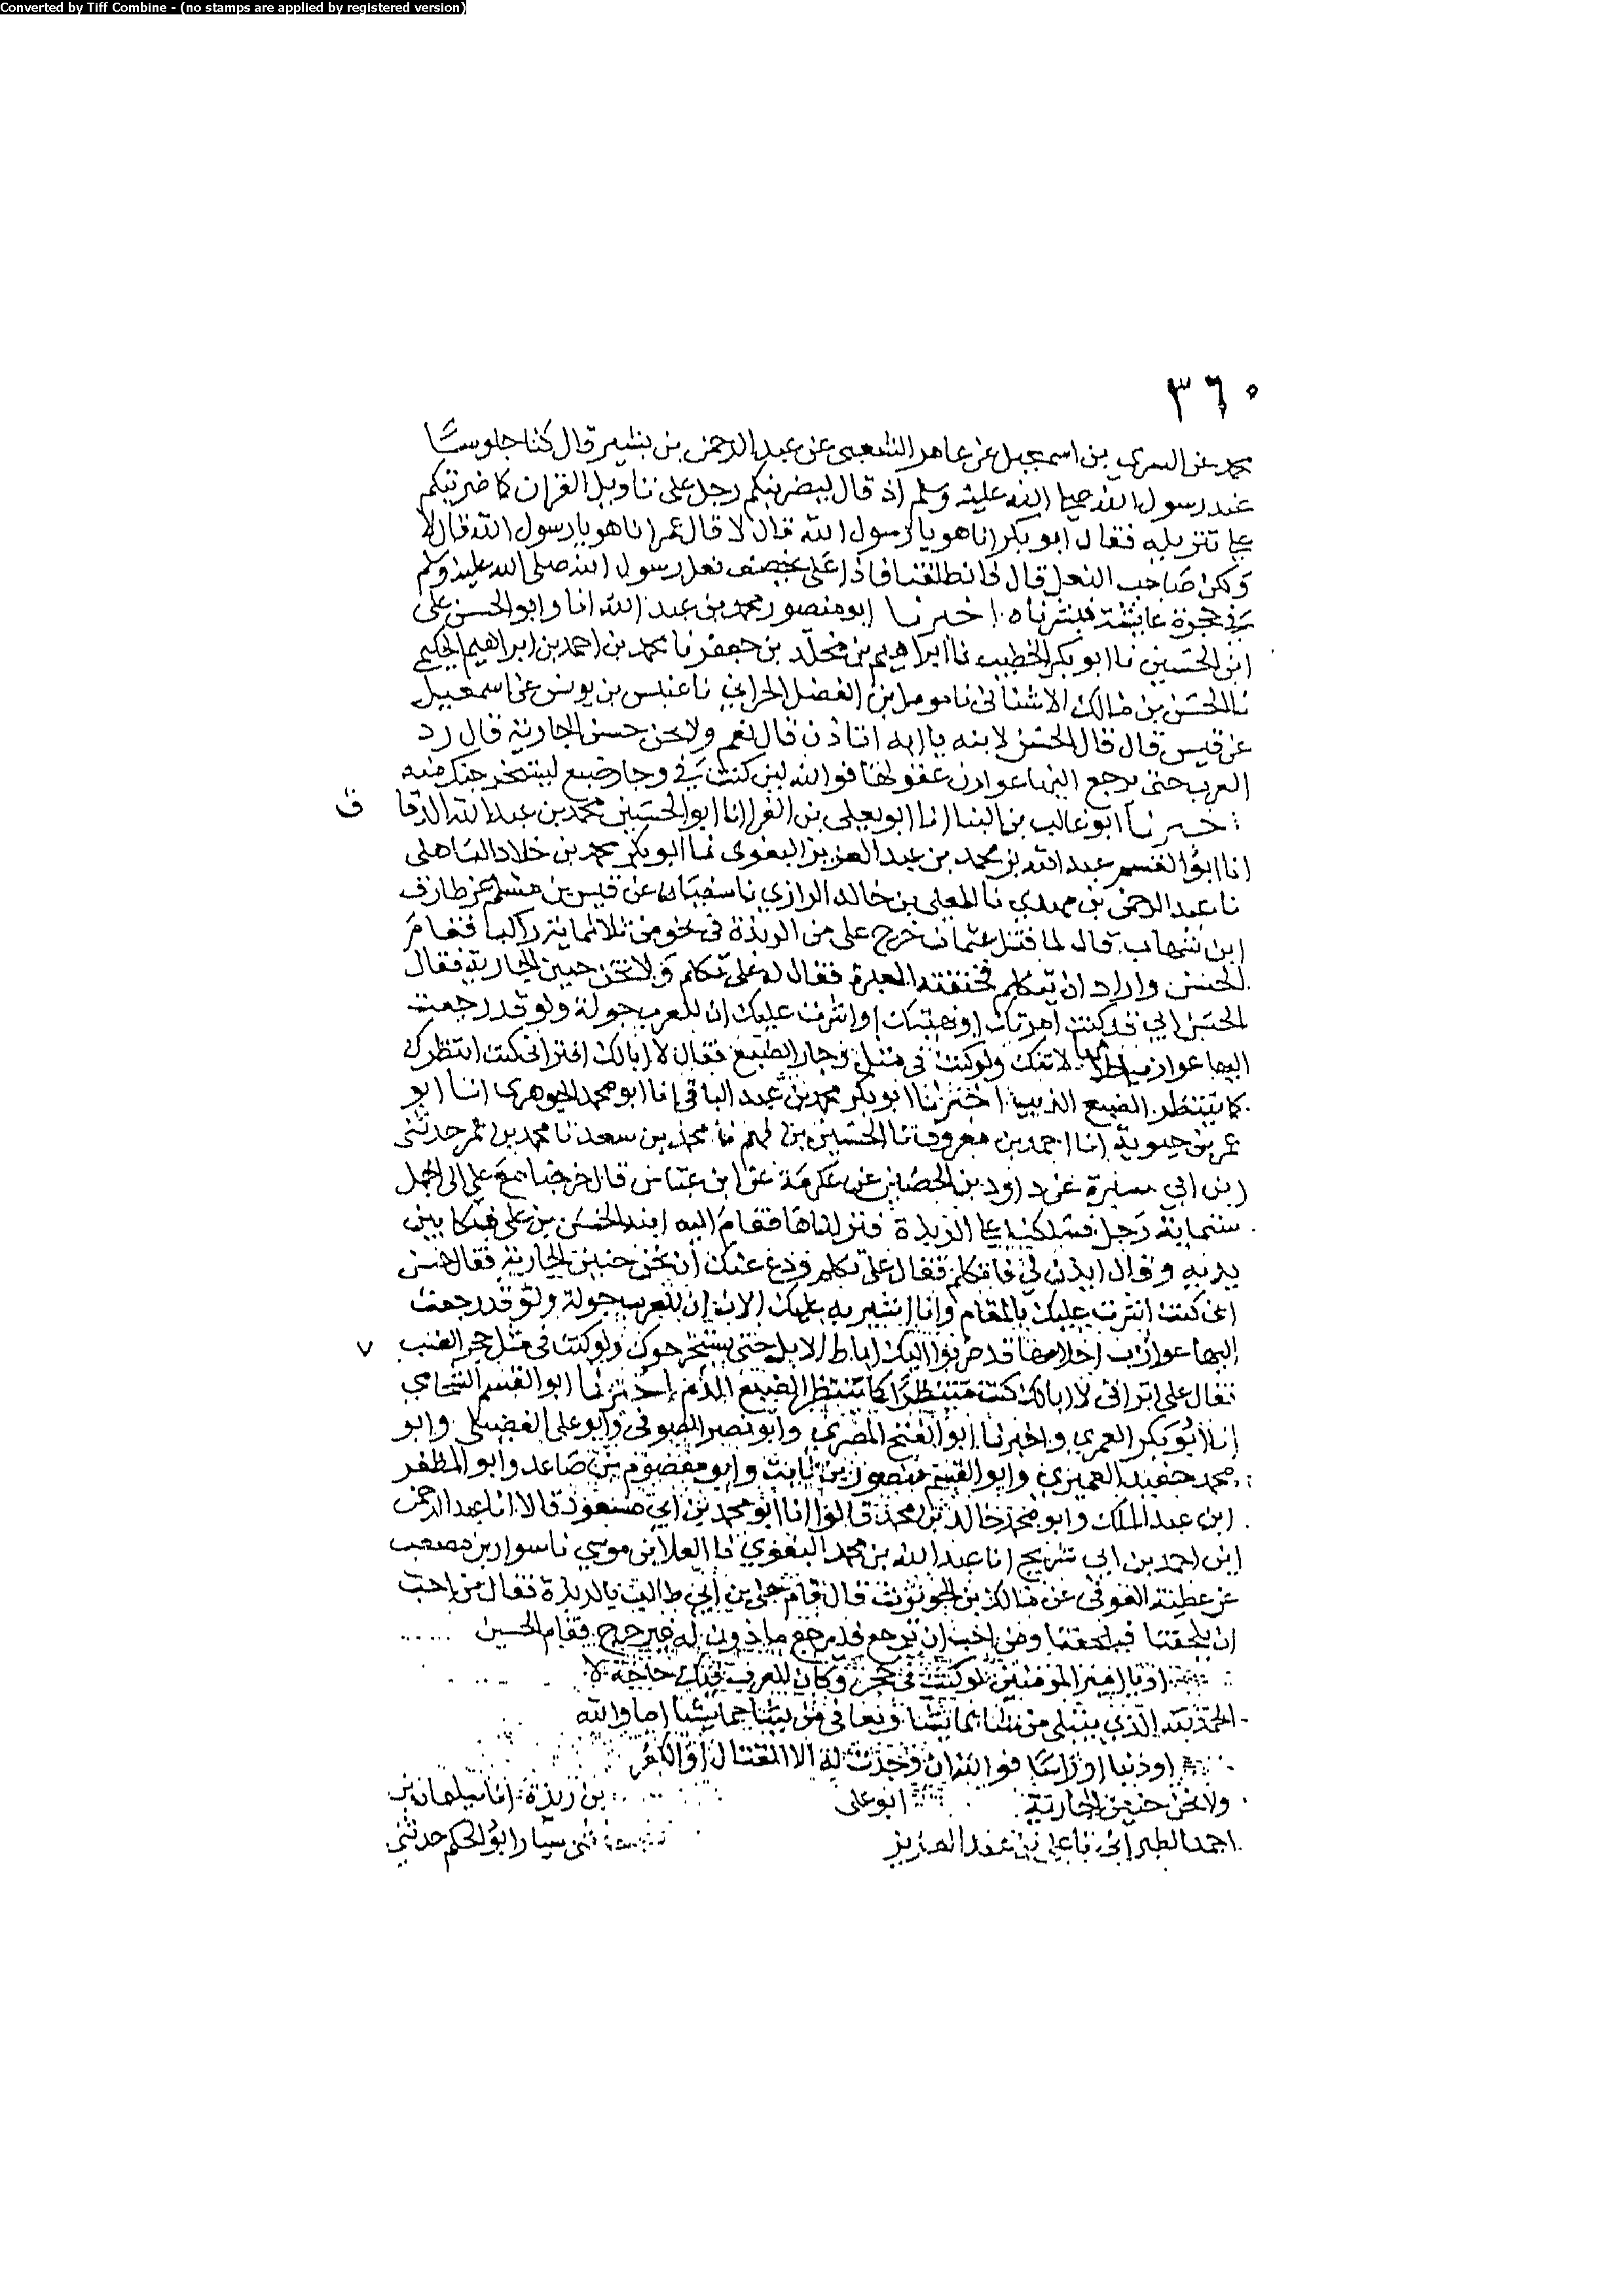 Converted by Tiff Combine - (no stamps are applied by registered version)
٣٦٠
محمد عن السري بن اسمعيل عن عامر الشعبى عن عبد الرحمن بن بشير قال كنا جلوسًا
عند رسول الله صلى الله عليه وسلم اذ قال ليضربنكم رجل على تاويل القران كما ضربتكم
على تنزيله فقال ابو بكر انا هو يا رسول الله قال لا قال عمر انا هو يا رسول الله قال لا
ولكن صاحب النعل قال فانطلقنا فاذا على يخصف نعل رسول الله صلى الله عليه وسلم
في حجرة عايشة فبشرناه اخبرنا ابو منصور محمد بن عبد الله انا وابو الحسن على
ابن الحسين نا ابو بكر الخطيب نا ابراهيم بن مخلد بن جعفر نا محمد بن احمد بن ابراهيم الحكيمي
نا الحسن بن مالك الاشنانى نا مومل ابن الفضل الحراني نا عيسى بن يونس عن اسمعيل
عن قيس قال قال الحسن لابنه يا ابه اتاذن قال نعم ولا تحن حنين الجارية قال رد
العرب حتى يرجع اليها عوازب عقولها فوالله لين كنت في وجار ضبع ليستخرجنك منه
اخبرنا ابو غالب بن البنا انا ابو يعلى بن الفرا انا ابو الحسين محمد بن عبد الله الدقاق
انا ابو القسم عبد الله بن محمد بن عبد العزيز البغوى نا ابو بكر محمد بن خلاد الباهلى
نا عبد الرحمن بن مهدي نا المعلى بن خالد الرازي نا سفيان عن قيس بن مسلم عن طارق
ابن شهاب قال لما قتل عثمان خرج على من الربذة فى نحو من ثلاثماية راكبا فقام
الحسن واراد ان يتكلم فخنقته العبرة فقال له على تكلم ولا تحن حنين الجارية فقال
الحسن اني قد كنت امرتك او نهيتك او اشرت عليك ان للعرب جولة ولو قد رجعت
اليها عوازب احلامها لاتتك ولو كنت فى مثل وجار الضبع فقال لا ابالك افترانى كنت انتظرك
كما ينتظر الضبع اخبرنا ابو بكر محمد بن عبد الباقى انا ابو محمد الجوهرى انا ابو
عمر بن حيوية انا احمد بن معروف نا الحسين بن فهم نا محمد بن سعد نا محمد بن عمر حدثنى
ابن ابي سبرة عن داود بن الحصين عن عكرمة عن ابن عباس قال خرجنا مع على الى الجمل
ستماية رجل فسلكنا على الربذة فنزلناها فقام اليه ابنه الحسن بن على فبكا بين
يديه وقال ايذن لى فاتكلم فقال على تكلم ودع عنك ان تحن حنين الجارية فقال حسن
انى كنت اشرت عليك بالمقام وانا اشير به عليك الان ان للعرب جولة ولو قد رجعت
اليها عوازب احلامها قد ضربوا اليك اباط الابل حتى يستخرجوك ولو كنت فى مثل جحر الضب
فقال على اترانى لا ابالك كنت منتظرا كما تنتظر الضبع اللدم اخبرنا ابو القسم الشحامي
انا ابو بكر العمري واخبرنا ابو الفتح المضري وابو نصر الصوفى وابو على الفضيلى وابو
محمد حفيد العميزي وابو القسم منصور بن ثابت وابو معصوم بن صاعد وابو المظفر
ابن عبد الملك وابو محمد خالد بن محمد قالوا انا ابو محمد بن ابي مسعود قالا انا عبد الرحمن
ابن احمد بن ابي شريح انا عبد الله بن محمد البغوي نا العلا بن موسي نا سوار بن مصعب
عن عطية العوفى عن مالك بن الجويرث قال قام على بن أبي طالب بالربذة فقال من احب
ان يلحقنا فيلحقنا ومن احب ان يرجع فليرجع ماذون له غير حرج فقام الحسين
يا امير المومنين لو كنت فى جحر وكان للعرب فيك حاجة لا
الحمد لله الذي يبتلى من يشا بما يشا ويعافى من يشا بما يشا اما والله
فوالله ان وجدت له الا القتال او الكفر
ولا تحن حنين الجارية ابو على بن ريذة انا سليمان بن
احمد الطبرانى نا على بن عبد العزيز سيار ابو الحكم حدثني